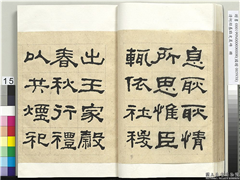 息耿情
所思惟臣
輒依社稷
出王家穀
春秋行禮
以共煙祀
15